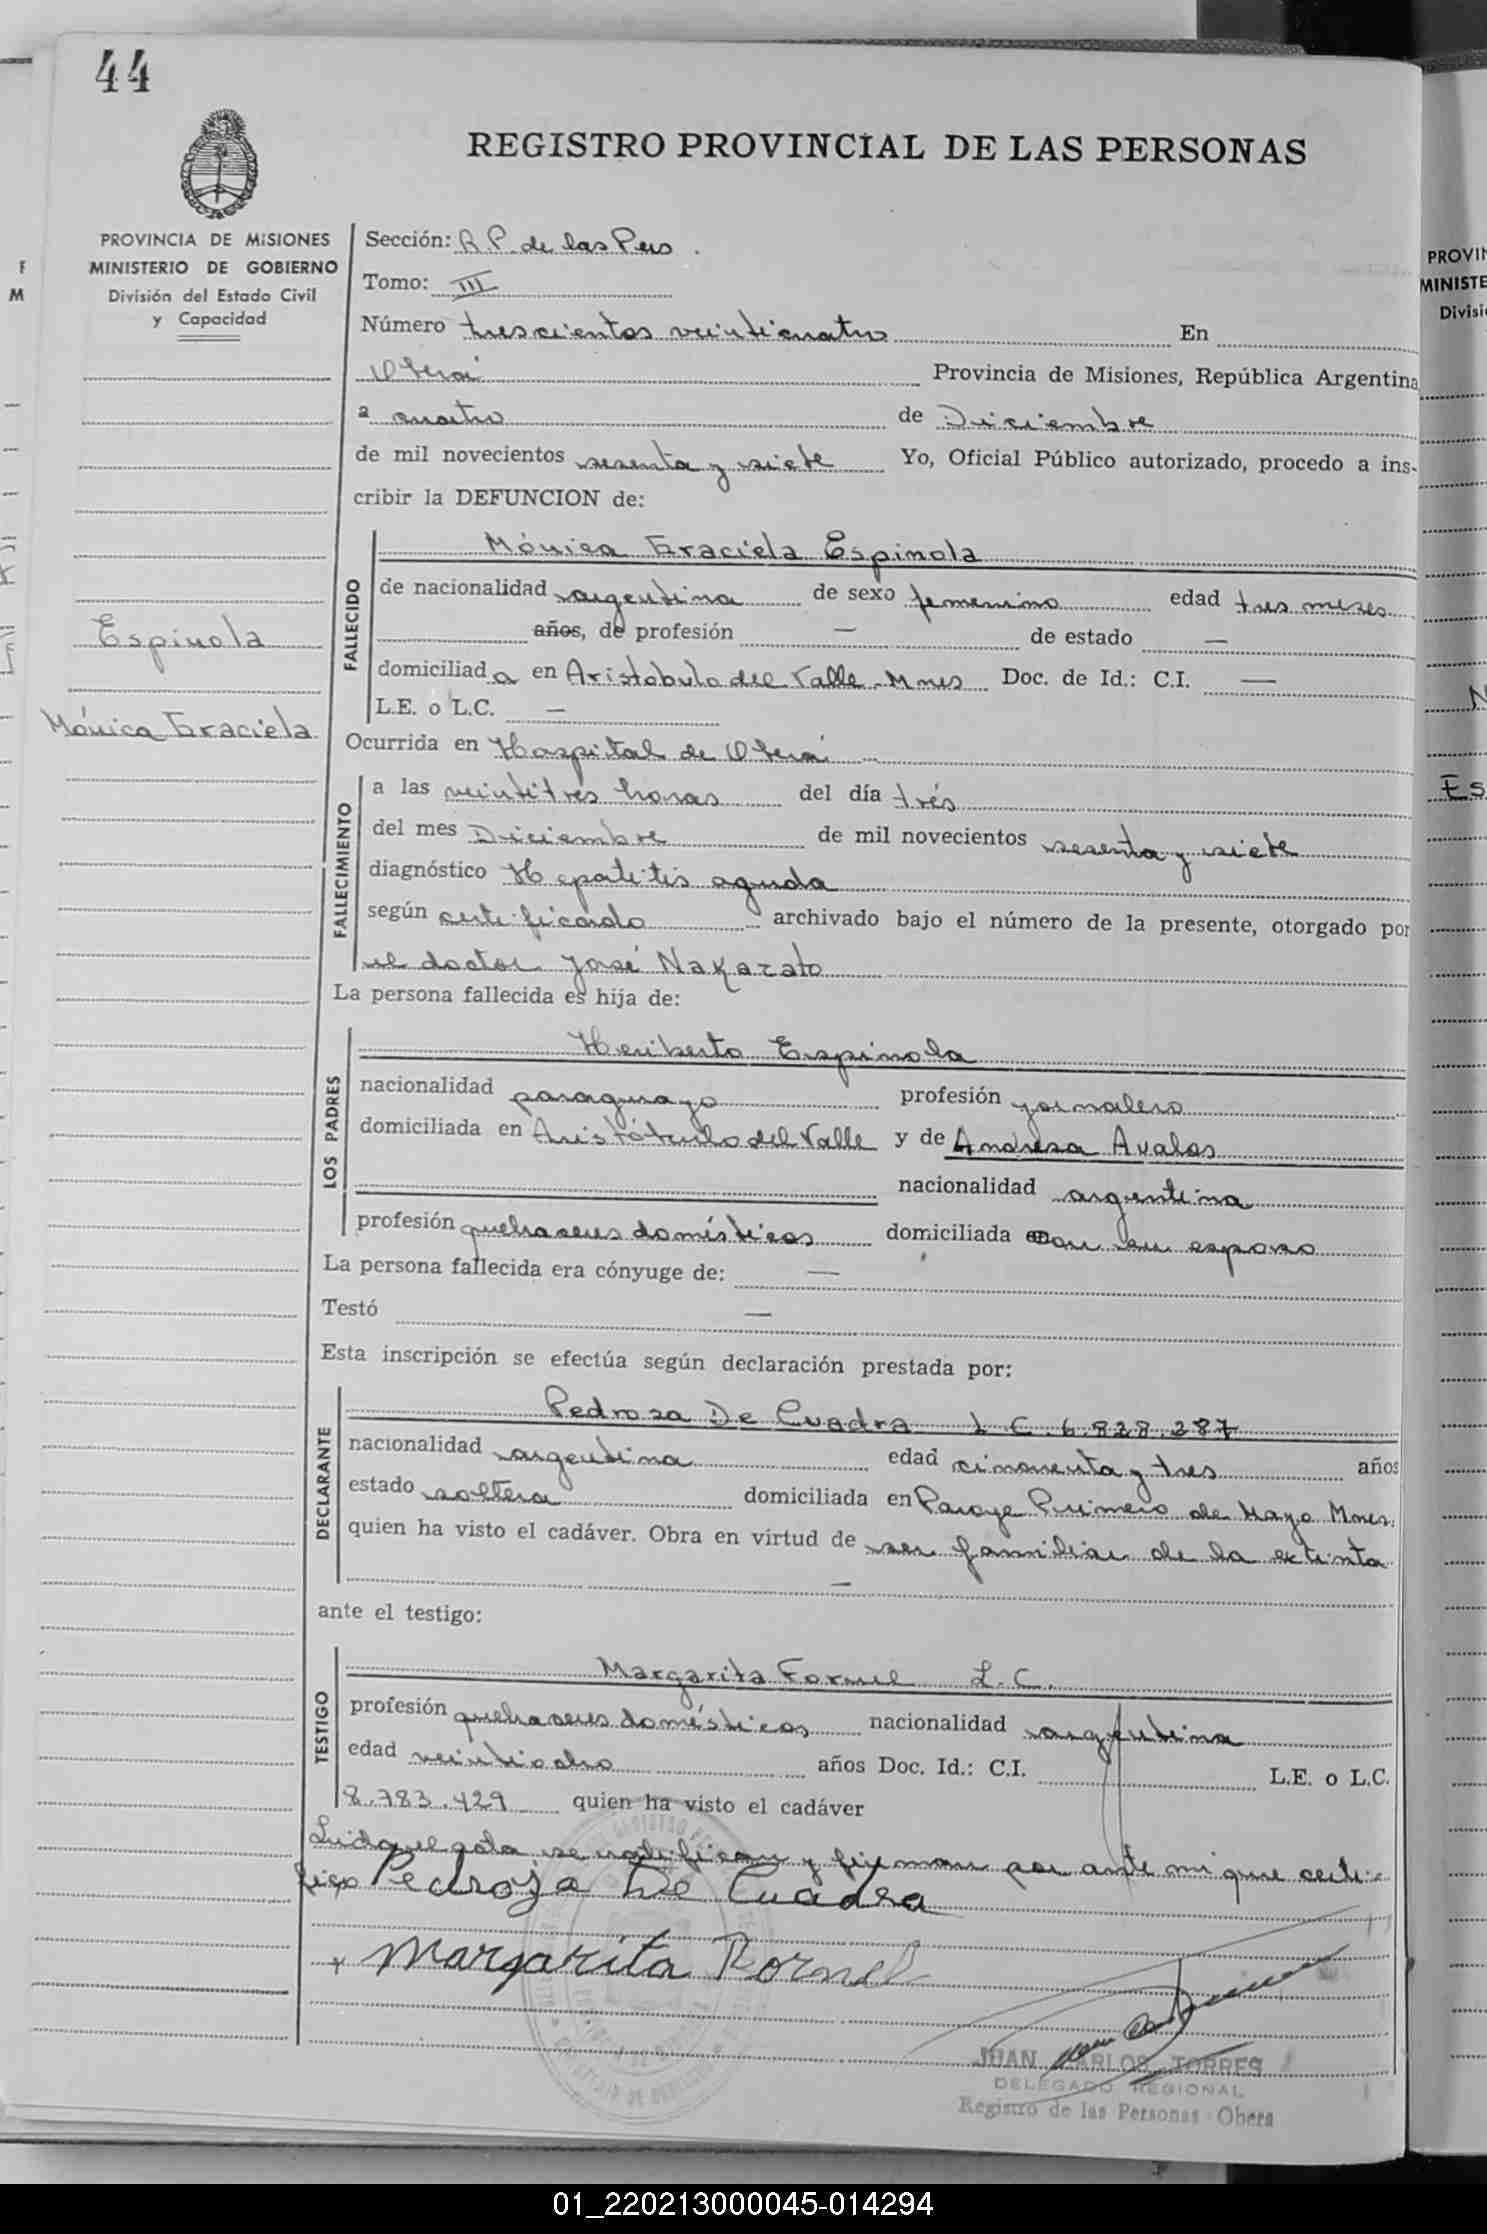 44
REGISTRO PROVINCIAL DE LAS PERSONAS
PROVINCIA DE MISIONES
MINISTERIO DE GOBIERNO
División del Estado Civil
y Capacidad
Espinola
Mónica Graciela
Sección: R P. de las Pers.
Tomo: III
Número trescientos veinticuatro En
Oberá Provincia de Misiones, República Argentina
a cuatro de Diciembre
de mil novecientos sesenta y siete Yo, Oficial Público autorizado, procedo a ins-
cribir la DEFUNCION de:
FALLECIDO
Mónica Graciela Espinola
de nacionalidad argentina de sexo femenino edad tres meses
años, de profesión — de estado —
domiciliad a en Aristóbulo del Valle. Mnes Doc. de Id.: C.I. —
L.E. o L.C. —
Ocurrida en Hospital de Oberá
FALLECIMIENTO
a las veintitrés horas del día trés
del mes Diciembre de mil novecientos sesenta y siete
diagnóstico Hepatitis aguda
según certificado archivado bajo el número de la presente, otorgado por
el doctor José Nakazato
La persona fallecida es hija de:
LOS PADRES
Heriberto Espinola
nacionalidad paraguayo profesión jornalero
domiciliada en Aristóbulo del Valle y de Andresa Avalos
nacionalidad argentina
profesión quehaceres domésticos domiciliada con su esposo
La persona fallecida era cónyuge de: —
Testó —
Esta inscripción se efectúa según declaración prestada por:
DECLARANTE
Pedrosa De Cuadra L C. 6.828.287
nacionalidad argentina edad cincuenta y tres años
estado soltera domiciliada en Paraje Primero de Mayo Mnes.
quien ha visto el cadáver. Obra en virtud de ser familiar de la extinta
—
ante el testigo:
TESTIGO
Margarita Fornel L.C.
profesión quehaceres domésticos nacionalidad argentina
edad veintiocho años Doc. Id.: C.I. L.E. o L.C.
8.783.429 quien ha visto el cadáver
Leida el acta se ratifican y firman por ante mi que certi-
fico Pedrosa De Cuadra
Margarita Fornel
JUAN CARLOS TORRES
DELEGADO REGIONAL
Registro de las Personas - Obera
PROVIN
MINISTE
Divisi
Es
01_220213000045-014294